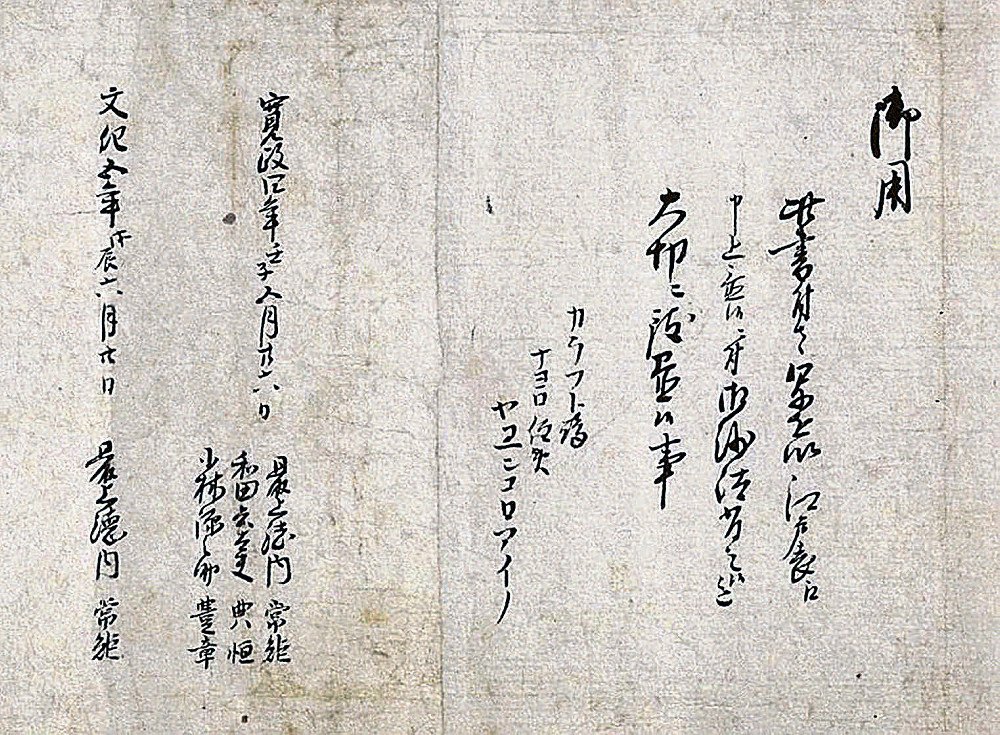 御用
此書付を以江戸表江
申上置候間御沙汰有之迄
大切ニ致置候事
カラフト嶋
ナヨロ住夷
ヤエンコロアイノ
寛政四年壬子八月廿六日
最上徳内 常矩
和田兵太夫 典恒
小林源之助 豊章
文化五年戊辰六月廿日
最上徳内 常矩